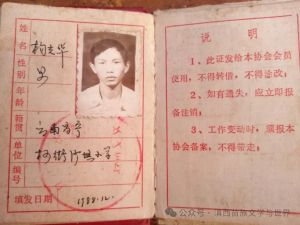 姓名
性别 男
年龄
籍贯 云南昌宁
单位
编号
填发日期 1988.12.
说明
1、此证发给本协会会员
使用，不得转借，不得涂改；
2、如有遗失，应立即报
备注销；
3、工作变动时，须报本
协会备案，不得带走；
公众号·滇西苗族文学与世界